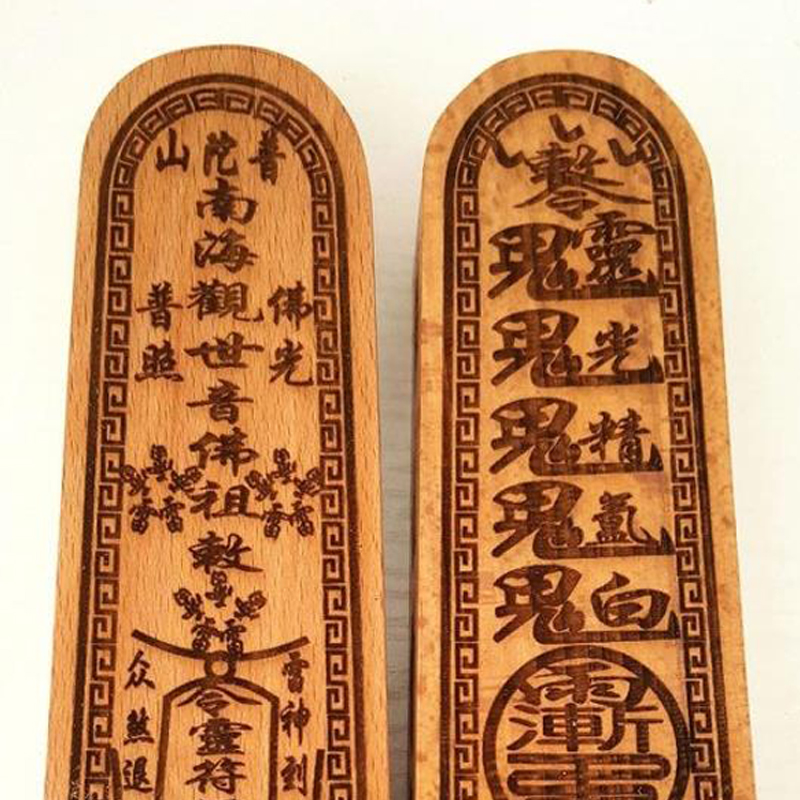 普陀山
南海觀世音佛祖敕
佛光
普照
雷神到
众煞退
令靈符
鬼靈
鬼光
鬼精
鬼
鬼白